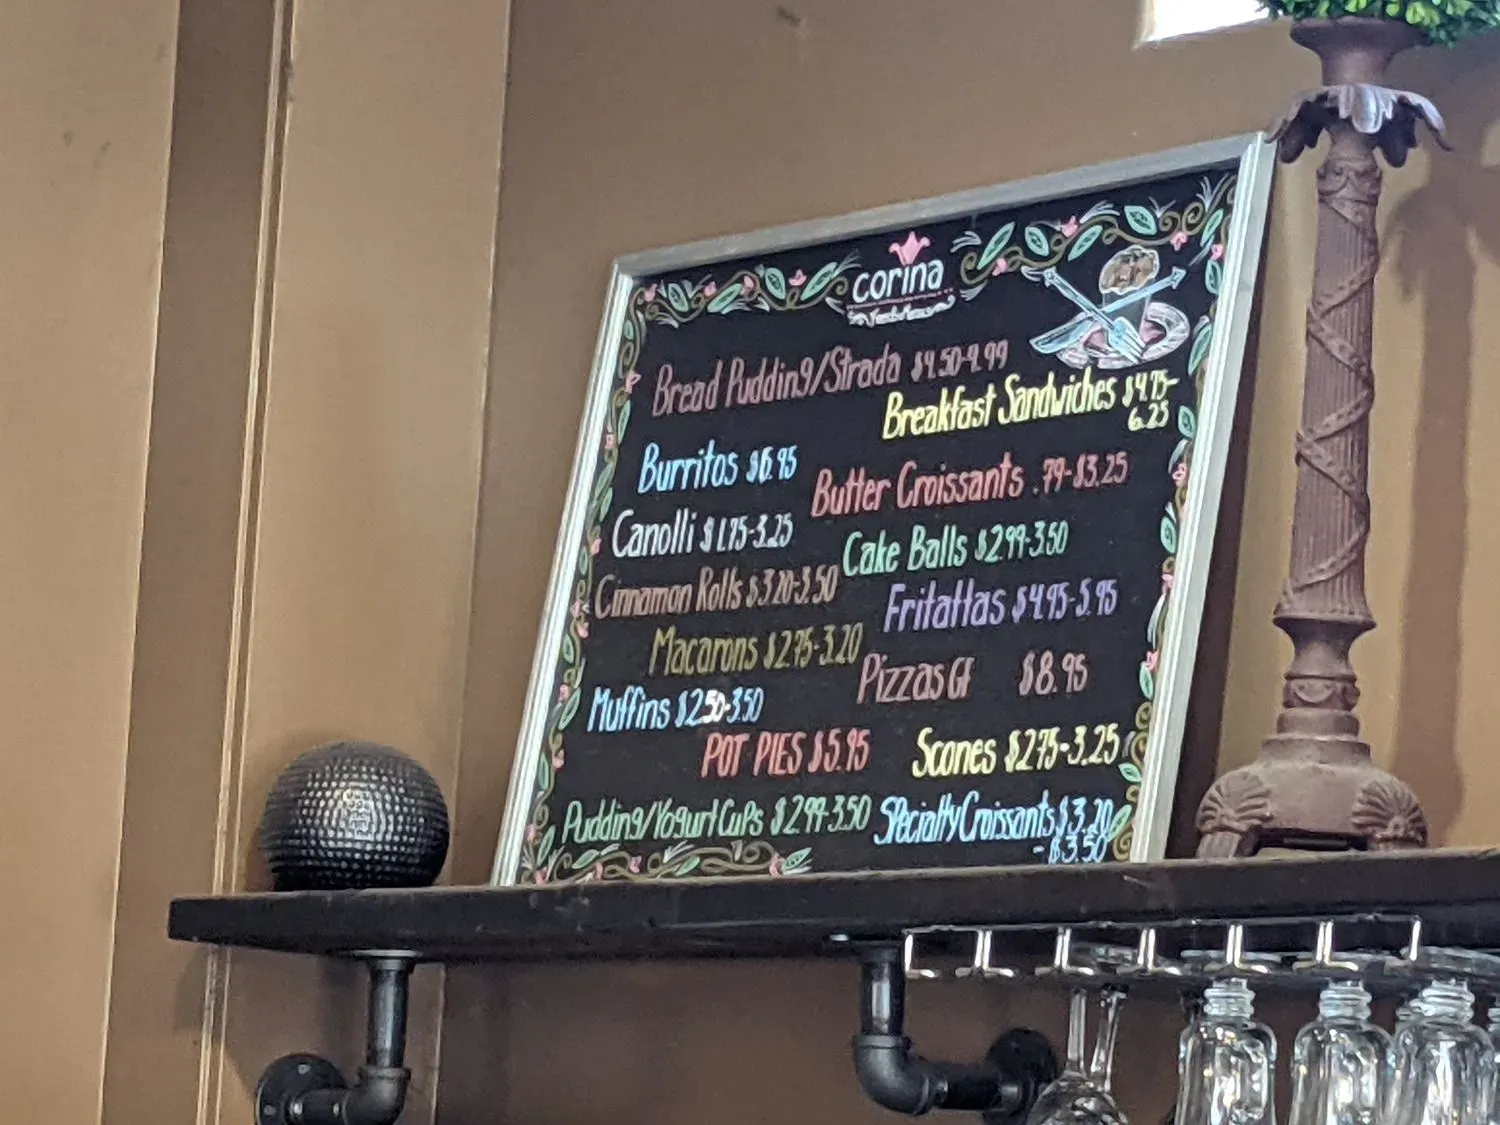 corina
Bread Pudding/Strada $4.50-4.99
Breakfast Sandwiches $4.75-
6.25
Burritos $6.95
Butter Croissants .79-$3.25
Canolli $1.75-3.25
Cake Balls $2.99-3.50
Cinnamon Rolls $3.20-3.50
Fritattas $4.95-5.95
Macarons $2.75-3.20
Pizzas GF $8.95
Muffins $2.50-3.50
POT PIES $5.95
Scones $2.75-3.25
Pudding/Yogurt Cups $2.99-3.50
Specialty Croissants $3.20
- $3.50